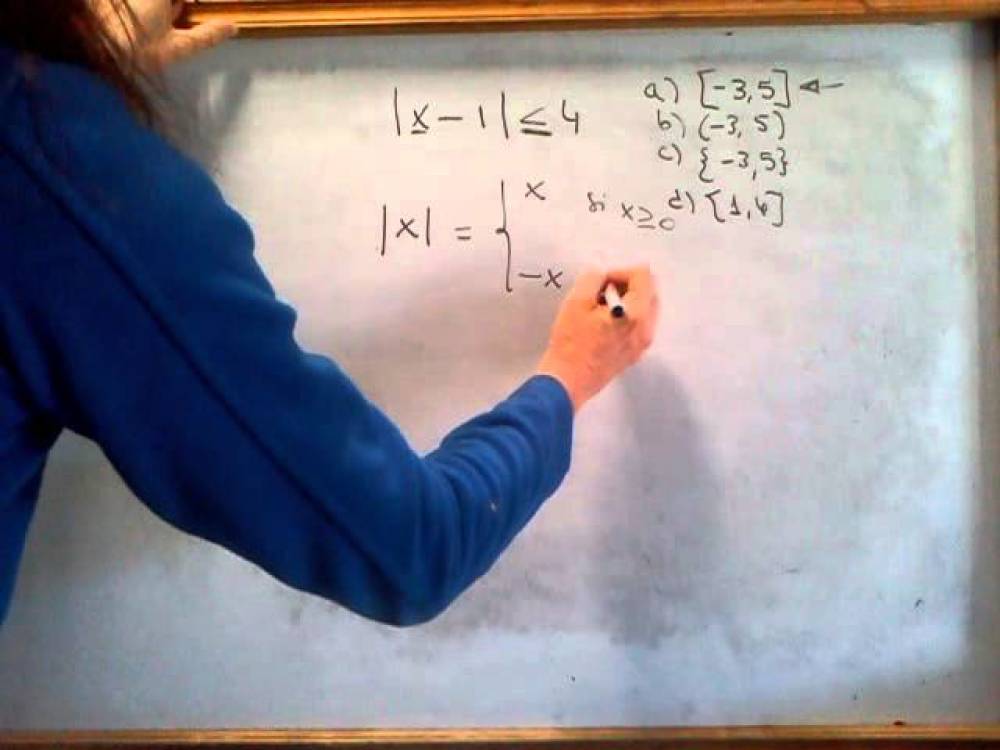 |x - 1| ≤ 4
a) [-3, 5]
b) (-3, 5)
c) {-3, 5}
d) [1, 4]
|x| = { x si x ≥ 0
-x